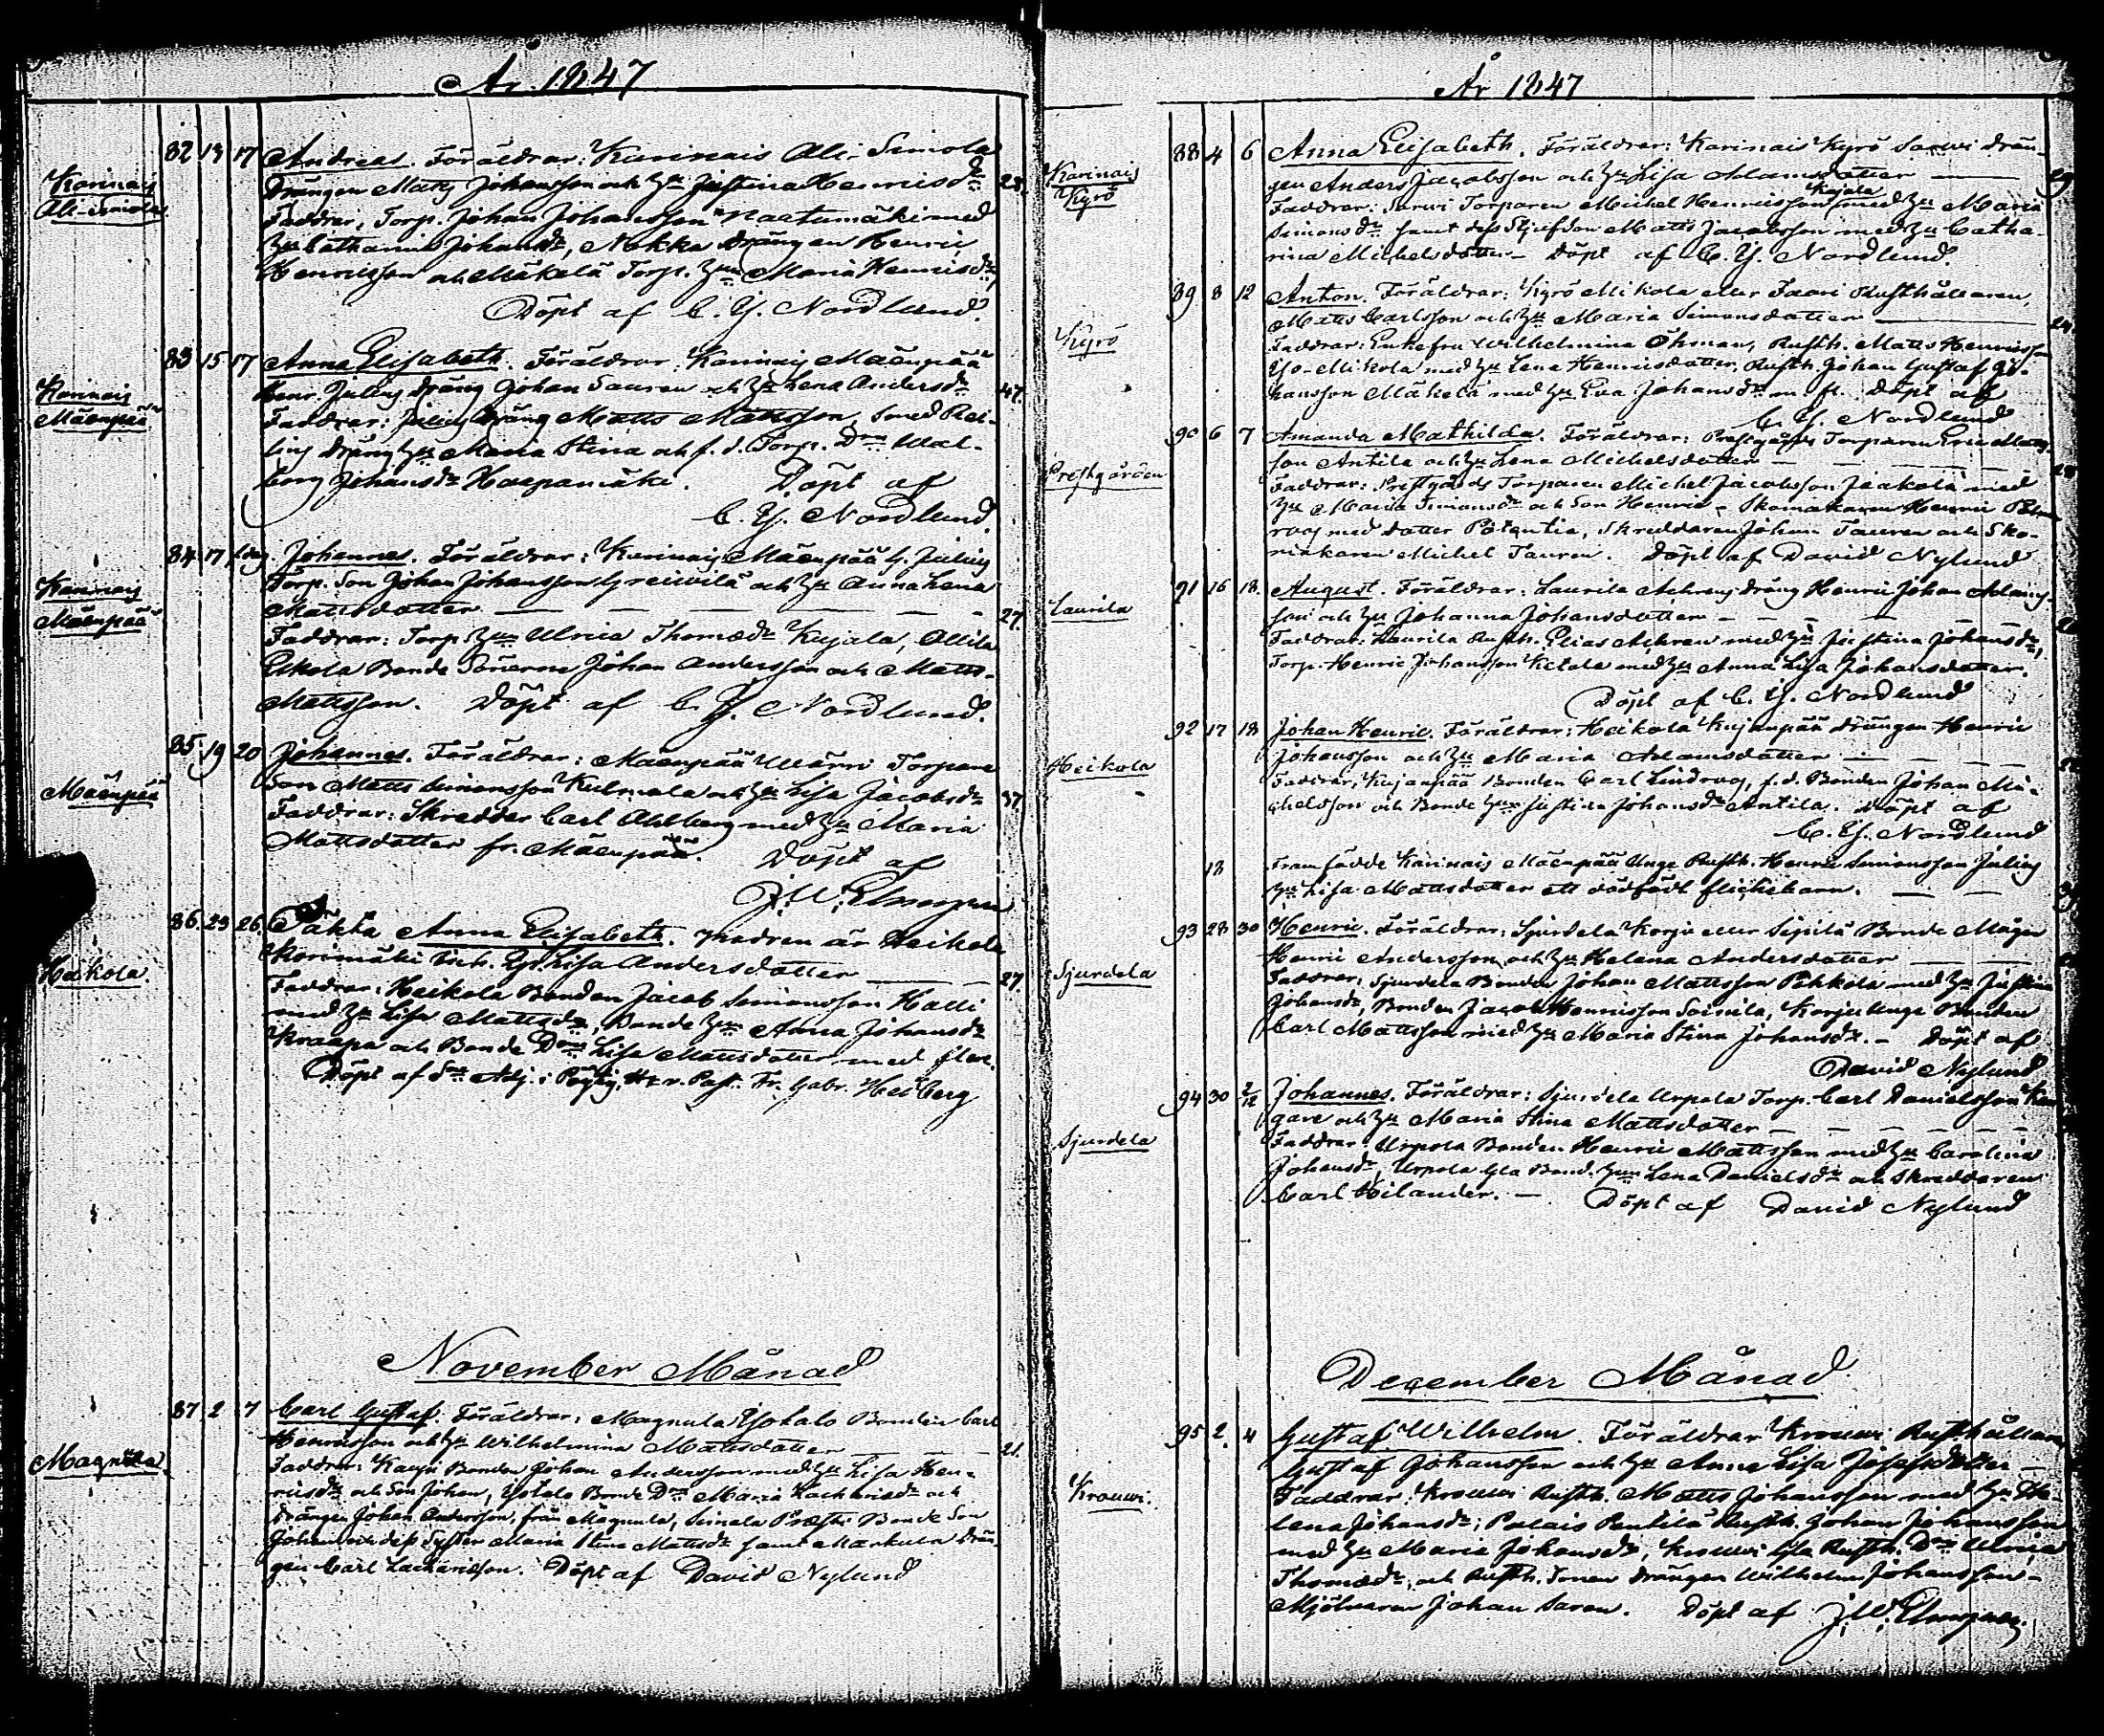 År 1847
Karinais
Ali-Simola
82 13 17 Andreas. Föräldrar: Karinais Ali-Simola
Drängen Matts Johansson och Hu Justina Henricsdr 28.
Faddrar, Torp. Johan Johansson Naatumäki med
Hu Catharina Johansdr, Nokka Drängen Henric
Henricsson och Mäkelä Torp. Hun Maria Henricsdr,
Döpt af C. Y. Nordlund.
Karinais
Mäenpää
83 15 17 Anna Elisabeth. Föräldrar: Karinais Mäenpää
Henr. Julins Dräng Johan Tauren och Hu Lena Andersdr 47.
Faddrar: Julins Dräng Matts Mattsson, Smed
Dräng Hu Maria Stina och f. d. Torp. Dr Wal-
borg Johansdr Haapamäki. Döpt af
C. Y. Nordlund.
Karinais
Mäenpää
84 17 Johannes. Föräldrar: Karinais Mäenpää G. Julins
Torp. Son Johan Johansson och Hu Anna Lena
Mattsdotter 27.
Faddrar: Torp. Hun Ulrica Thomædr Kujala, Ollila
Eskola Bonde Sönerne Johan Andersson och Matts
Mattsson. Döpt af C. Y. Nordlund.
Mäenpää
85 19 20 Johannes. Föräldrar: Mäenpää Torpare
Son Matts Simonsson Kulmala och Hu Lisa Jacobsdr 37.
Faddrar: Skredder Carl Ahlberg med Hu Maria
Mattsdotter fr. Mäenpää. Döpt af
J. W.
Heikola.
86. 23 26. Oäkta Anna Elisabeth. Modren är Heikola
Korimäki Inh. Lisa Andersdotter 27.
Faddrar: Heikola Bonden Jacob Simonsson Halli
med Hu Lisa Mattsdr, Bonde Hun Anna Johansdr
Kraapa och Bonde Dr Lisa Mattsdotter med flere.
Döpt af Adj. i Pöytis, V. Past. Fr. Gabr. Hedberg
November Månad
Magnula
87 2 7 Carl Gustaf. Föräldrar: Magnula Yohalo Bonden Carl
Henricsson och Hu Wilhelmina Mattsdotter 21.
Faddrar: Karju Bonden Johan Andersson med Hu Lisa Hen-
ricsdr och Son Johan, Yohalo Bonde Dr Maria Zachariædr och
Drängen Johan Andersson, från Magnula, Bonde Son
Johan och dess Syster Maria Stina Mattsdr samt Markula Drän-
gen Carl Zachariæson. Döpt af David Nylund
År 1847
Karinais
Kyrö
88 4 6 Anna Elisabeth. Föräldrar: Karinais Kyrö Sarwi Drän-
gen Anders Jacobsson och Hu Lisa Adamsdotter 29
Faddrar: Sarwi Torparen Michel Henricsson Kujala med Hu Maria
Simonsdr samt dess Stjufson Matts Jacobsson med Hu Catha-
rina Michelsdotter. Döpt af C. Y. Nordlund.
Kyrö
89 8 12 Anton. Föräldrar: Kyrö Mikola eller Faari Rusthållaren
Matts Carlsson och Hu Maria Simonsdotter 24.
Faddrar: Enkefru Wilhelmina Öhman, Rusth. Matts Henricsson
Yo-Mikola med Hu Lena Henricsdotter, Rusth. Johan Gustaf Jo-
hansson Mäkelä med Hu Eva Johansdr m. fl. Döpt af
C. Y. Nordlund
Prestgården
90 6 7 Amanda Mathilda. Föräldrar: Prestgårds Torparen Eric Matts-
son Antila och Hu Lena Michelsdotter
Faddrar: Prestgårds Torparen Michel Jacobsson Jaakola med
Hu Maria Simonsdr och Son Henric, Skomakaren Henric
med dotter Potentia, Skreddaren Johan Tauren och Sko-
makaren Michel Tauren. Döpt af David Nylund
Laurila
91 16 18. August. Föräldrar: Laurila Achrens Dräng Henric Johan Adams-
son och Hu Johanna Johansdotter
Faddrar: Laurila Rusth. Elias Achren med Hu Justina Johansdr,
Torp. Henric Johansson Ketola med Hu Anna Lisa Johansdotter.
Döpt af C. Y. Nordlund
Heikola
92 17 18 Johan Henric. Föräldrar: Heikola Kujanpää Drängen Henric
Johansson och Hu Maria Adamsdotter
Faddrar, Kujanpää Bonden Carl Lindroos, f. d. Bonden Johan Mi-
chelsson och Bonde Hun Justina Johansdr Antila. Döpt af
C. Y. Nordlund
18 Framfödde Karinais Mäenpää Unge Rusth. Henric Simonsson Julins
Hu Lisa Mattsdotter ett dödfödt flickebarn.
Sjurdela
93 28 30 Henric. Föräldrar: Sjurdela Korju eller Sipilä Bonde Mågen
Henric Andersson och Hu Helena Andersdotter
Faddrar: Sjurdela Bonden Johan Mattsson Pihkola med Hu Justina
Johansdr, Bonden Jacob Henricsson Soinila, Korju Unge Bonden
Carl Mattsson med Hu Maria Stina Johansdr. Döpt af
David Nylund
Sjurdela
94 30 2/12 Johannes. Föräldrar: Sjurdela Urpola Torp. Carl Danielsson Kan-
gare och Hu Maria Stina Mattsdotter
Faddrar: Urpola Bonden Henric Mattsson med Hu Carolina
Johansdr, Urpola Gla Bond. Hun Lena Danielsdr och Skreddaren
Carl Hilander. Döpt af David Nylund
December Månad
Krouwi.
95 2. 4 Gustaf Wilhelm. Föräldrar Krouwi Rusthållaren
Gustaf Johansson och Hu Anna Lisa Josephsdotter
Faddrar: Krouwi Rusth. Matts Johansson med Hu He-
lena Johansdr; Palais Pentilä Rusth. Johan Johansson
med Hu Maria Johansdr, Krouwi Rusth. Dr Ulrica
Thomædr, och Rusth. Sonen Drängen Wilhelm Johansson
Mjölnaren Johan Saren. Döpt af J. W.